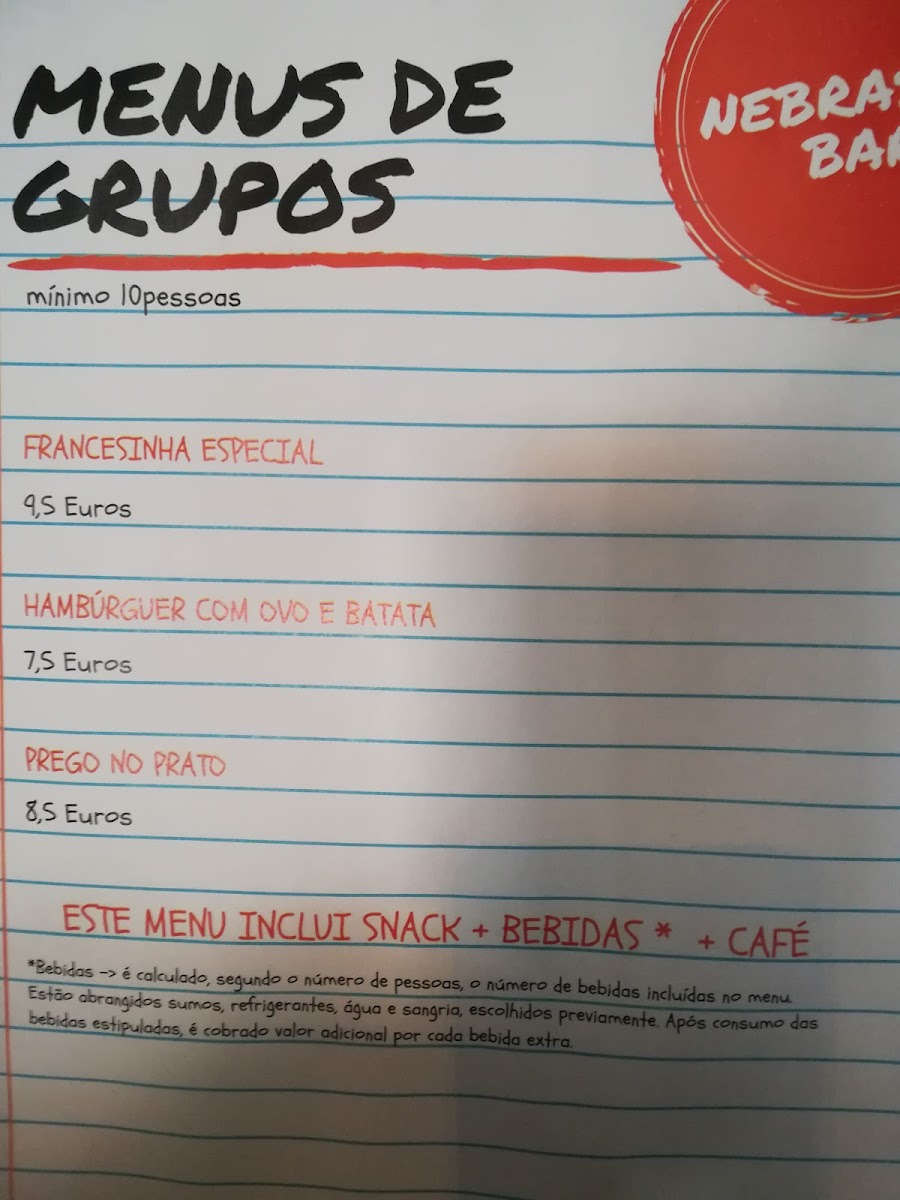 MENUS DE
GRUPOS
mínimo 10pessoas
FRANCESINHA ESPECIAL
9,5 Euros
HAMBÚRGUER COM OVO E BATATA
7,5 Euros
PREGO NO PRATO
8,5 Euros
ESTE MENU INCLUI SNACK + BEBIDAS * + CAFÉ
*Bebidas -> é calculado, segundo o número de pessoas, o número de bebidas incluídas no menu.
Estão abrangidos sumos, refrigerantes, água e sangria, escolhidos previamente. Após consumo das
bebidas estipuladas, é cobrado valor adicional por cada bebida extra.